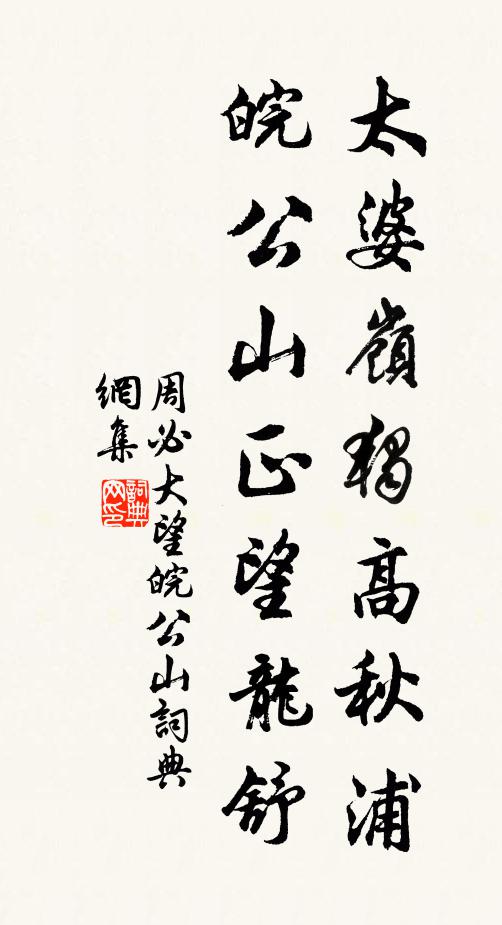 太婆嶺獨高秋浦
皖公山正望龍舒
周必大望皖公山詞典
網集
詞典網印